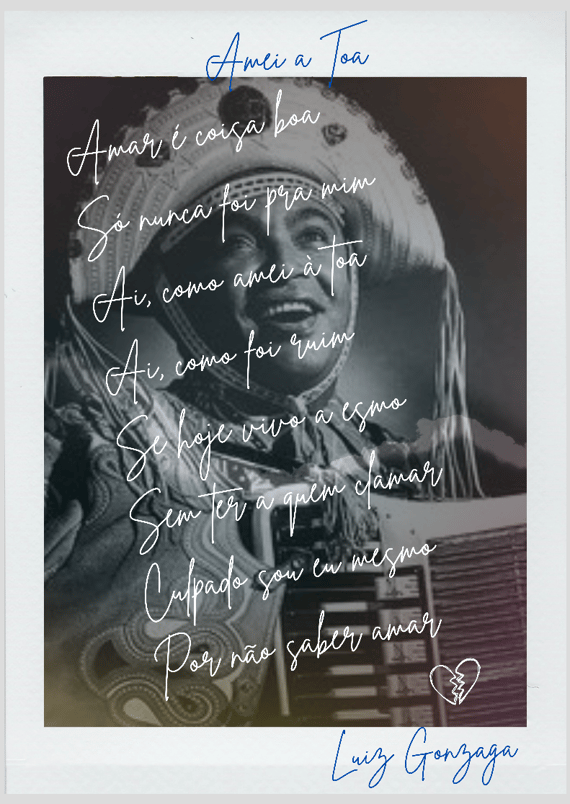 Amei a Toa
Amar é coisa boa
Só nunca foi pra mim
Ai, como amei à toa
Ai, como foi ruim
Se hoje vivo a esmo
Sem ter a quem clamar
Culpado sou eu mesmo
Por não saber amar
Luiz Gonzaga